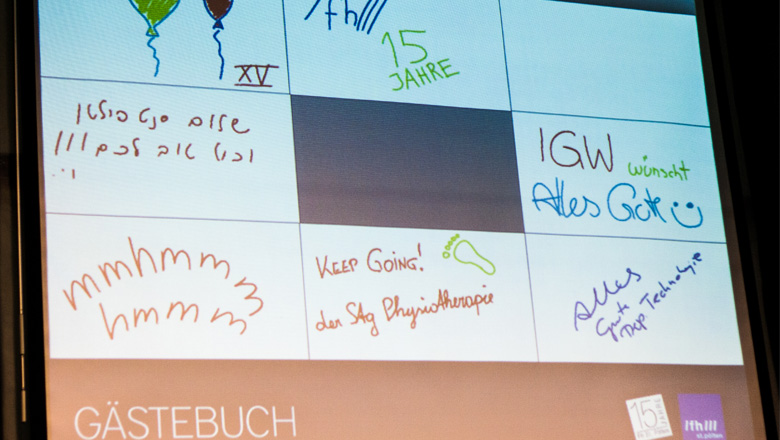 XV
/fh///
15
JAHRE
שלום סנט פולטן
וכול טוב לכם !!!
IGW wünscht
Alles Gute
mmhmmm
hmmmm
KEEP GOING!
der Stg Physiotherapie
Alles
Gute
Dep. Technologie
GÄSTEBUCH
15 JAHRE
/fh///
st.pölten